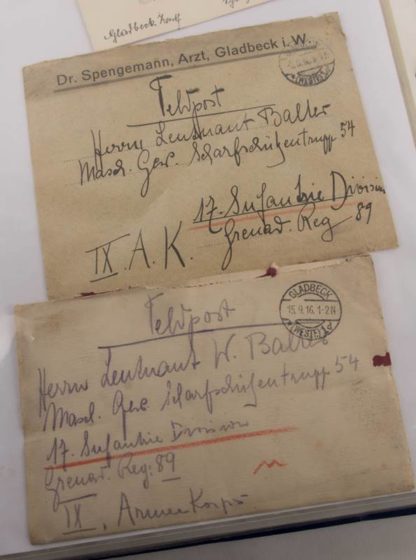 Gladbeck
Dr. Spengemann, Arzt, Gladbeck i. W.
Feldpost
Herrn Leutnant Balter
Masch. Gew. Scharfschützentrupp 54
17. Infantrie Division
Grenad. Reg 89
IX. A. K.
Feldpost
GLADBECK
15.9.16. 1-2N
(WESTF.)
Herrn Leutnant W. Balter
Masch. Gew. Scharfschützentrupp 54
17. Infantrie Division
Grenad. Reg: 89
IX. Armee Korps